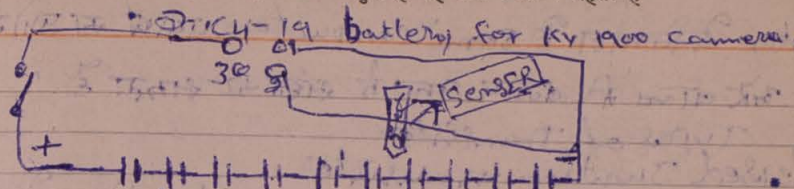 CY-19 battery for KY 1900 camera.
3
SENSER
+ -